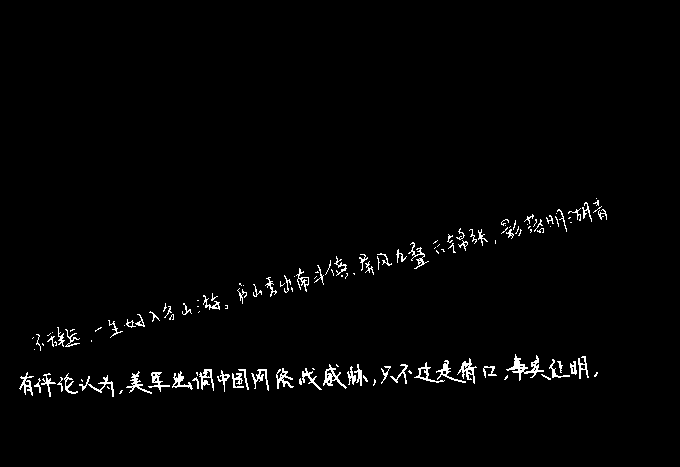 不辞远,一生好入名山游。庐山秀出南斗傍,屏风九叠云锦张,影落明湖青
有评论认为,美军强调中国网络战威胁,只不过是借口,事实证明,